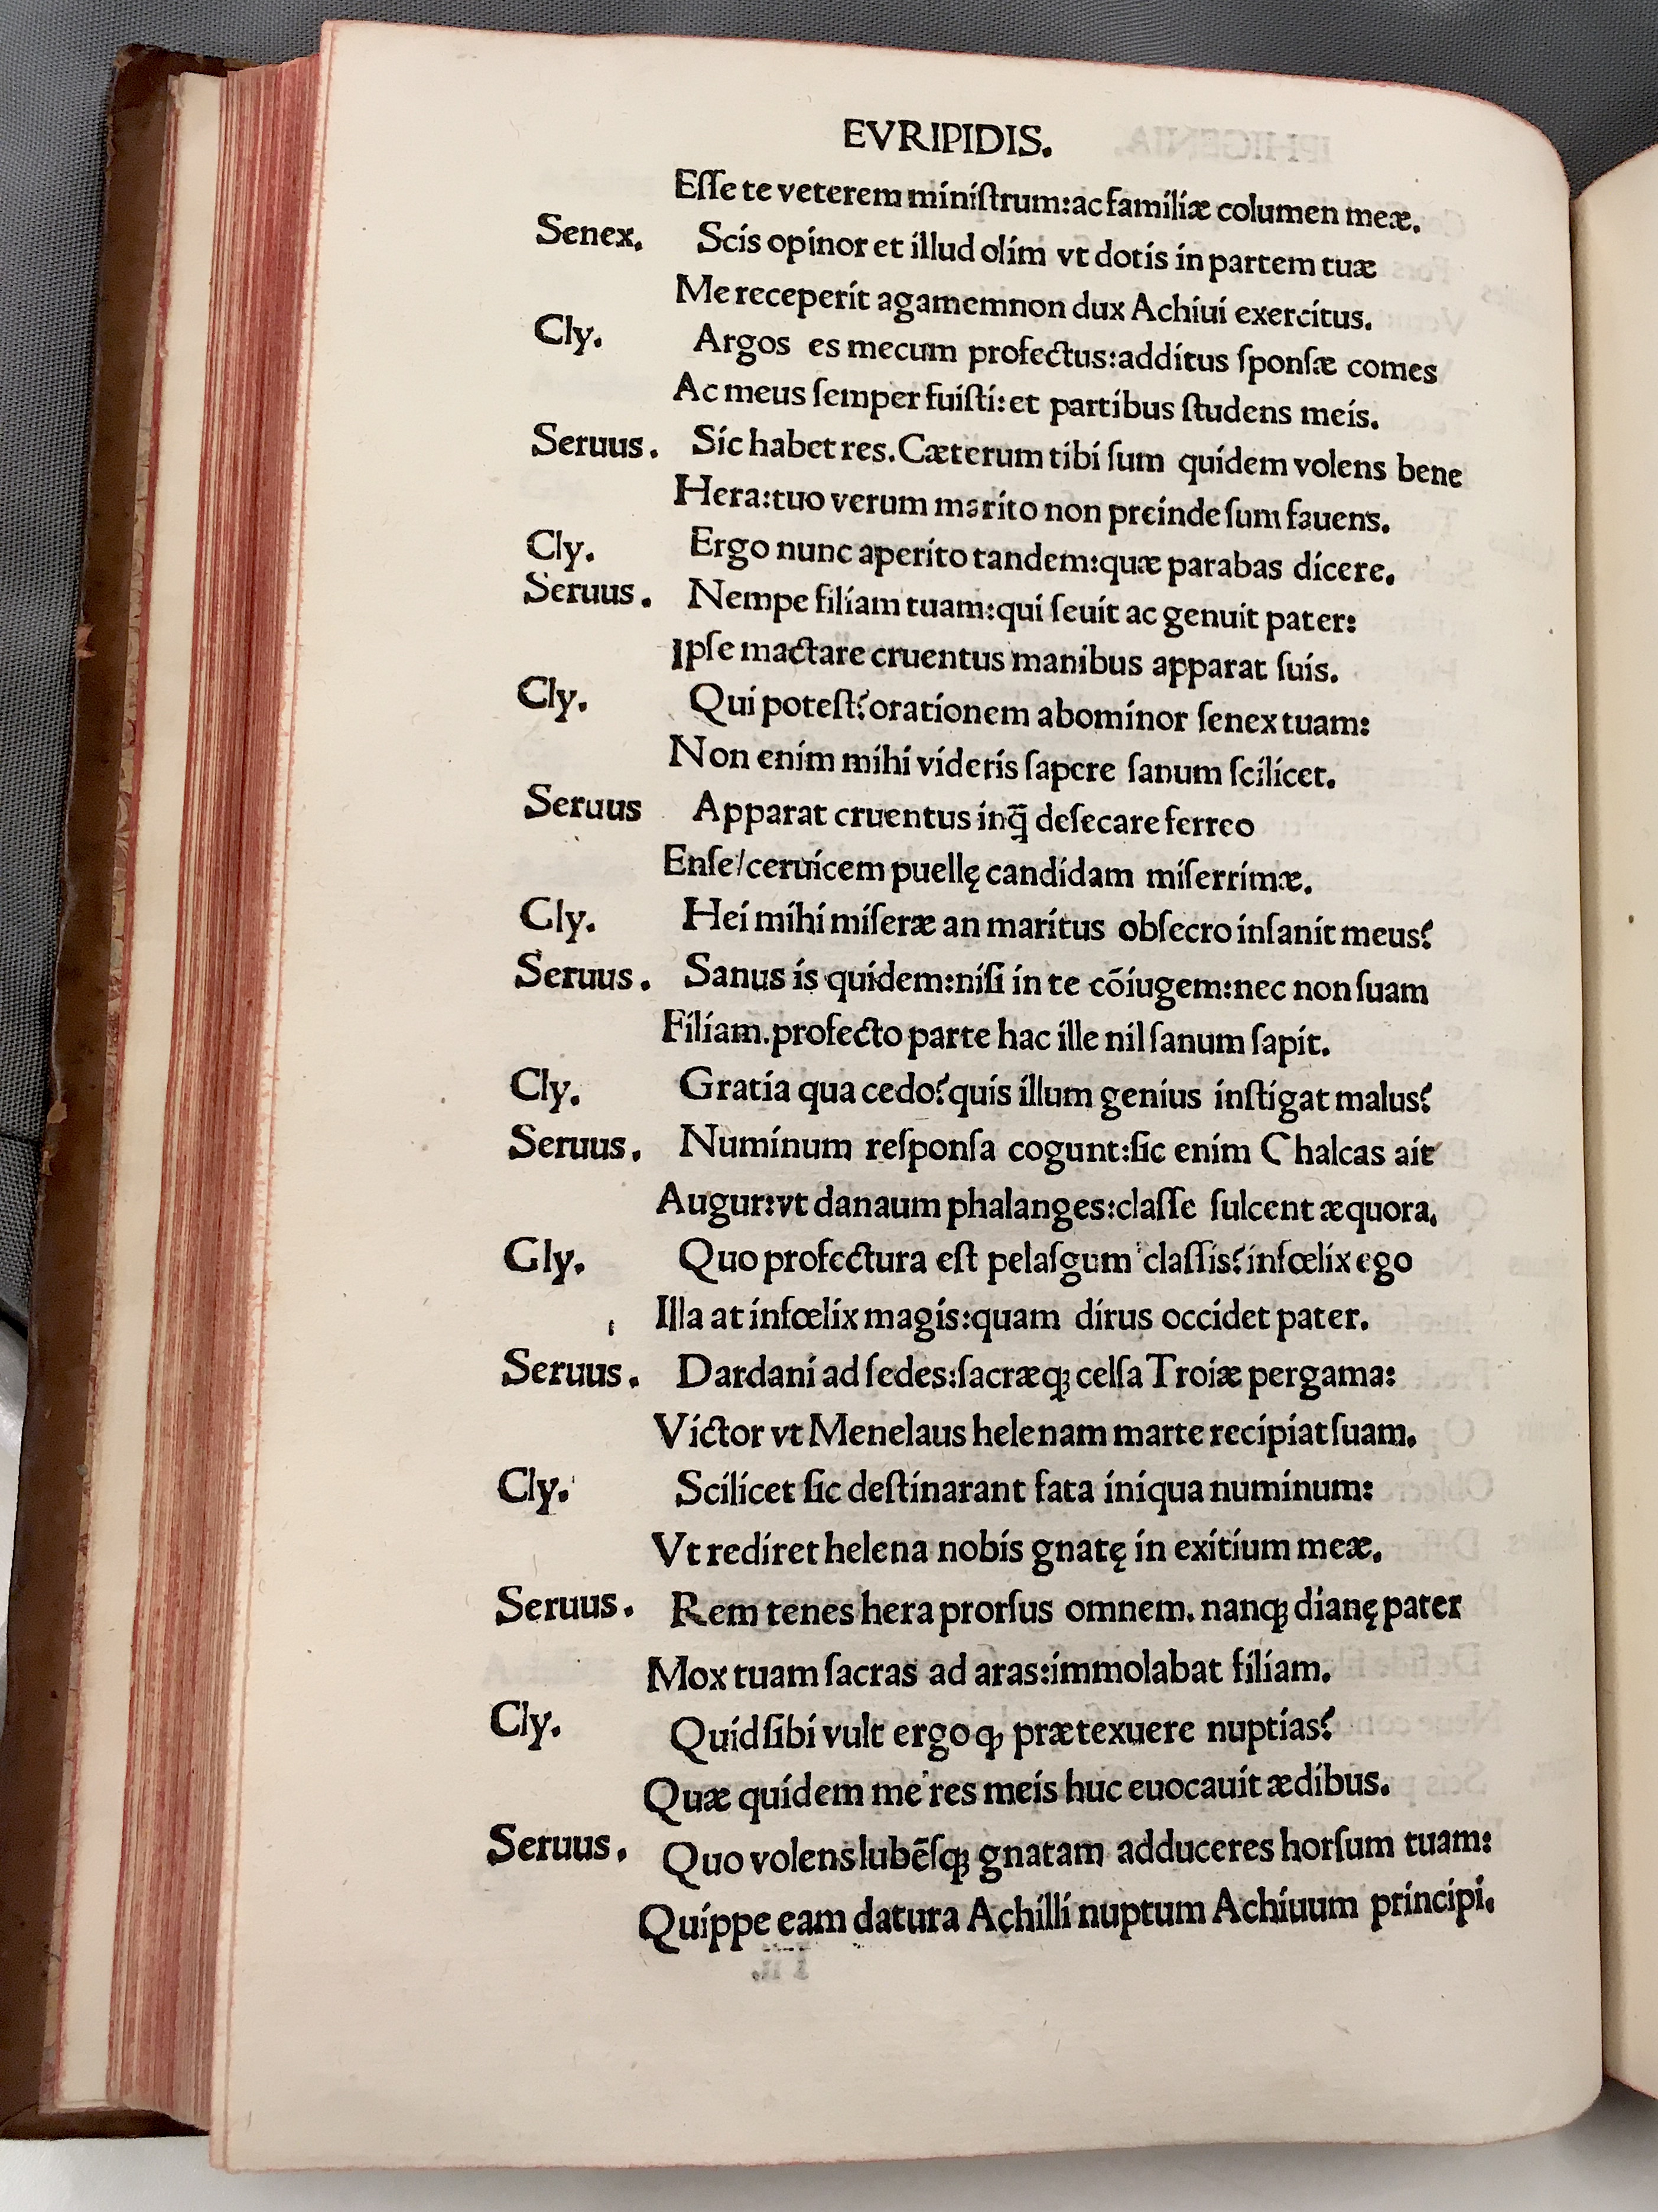 EVRIPIDIS.
Eſſe te veterem miniſtrum:ac familiæ columen meæ.
Senex. Scis opinor et illud olim vt dotis in partem tuæ
Me receperit agamemnon dux Achiui exercitus.
Cly. Argos es mecum profectus:additus ſponſæ comes
Ac meus ſemper fuiſti:et partibus ſtudens meis.
Seruus. Sic habet res.Cæterum tibi ſum quidem volens bene
Hera:tuo verum marito non preinde ſum fauens.
Cly. Ergo nunc aperito tandem:quæ parabas dicere.
Seruus. Nempe filiam tuam:qui ſeuit ac genuit pater:
Ipſe mactare cruentus manibus apparat ſuis.
Cly. Qui poteſt?orationem abominor ſenex tuam:
Non enim mihi videris ſapere ſanum ſcilicet.
Seruus Apparat cruentus inq̄ deſecare ferreo
Enſe/ceruicem puellę candidam miſerrimæ.
Gly. Hei mihi miſeræ an maritus obſecro inſanit meus?
Seruus. Sanus is quidem:niſi in te cõiugem:nec non ſuam
Filiam.profecto parte hac ille nil ſanum ſapit.
Cly. Gratia qua cedo?quis illum genius inſtigat malus?
Seruus. Numinum reſponſa cogunt:ſic enim Chalcas ait
Augur:vt danaum phalanges:claſſe ſulcent æquora.
Gly. Quo profectura eſt pelaſgum claſſis?infœlix ego
Illa at infœlix magis:quam dirus occidet pater.
Seruus. Dardani ad ſedes:ſacræqꝫ celſa Troiæ pergama:
Victor vt Menelaus helenam marte recipiat ſuam.
Cly. Scilicet ſic deſtinarant fata iniqua numinum:
Vt rediret helena nobis gnatę in exitium meæ.
Seruus. Rem tenes hera prorſus omnem. nanqꝫ dianę pater
Mox tuam ſacras ad aras:immolabat filiam.
Cly. Quid ſibi vult ergo qꝫ prætexuere nuptias?
Quæ quidem me res meis huc euocauit ædibus.
Seruus. Quo volens lubēſqꝫ gnatam adduceres horſum tuam:
Quippe eam datura Achilli nuptum Achiuum principi.